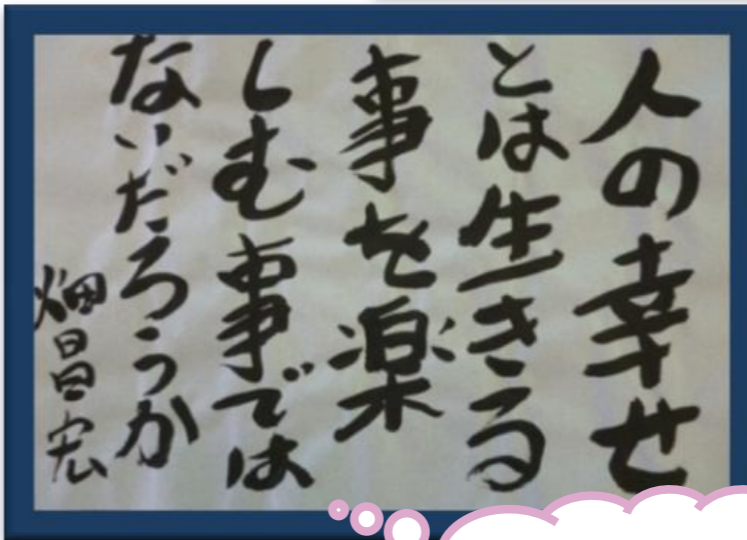 人の幸せ
とは生きる
事を楽
しむ事では
ないだろうか
畑昌宏